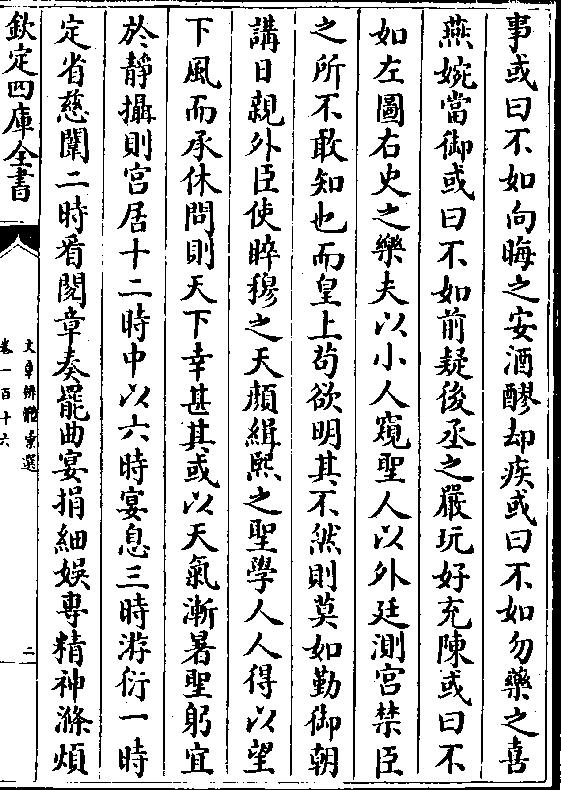 事或曰不如向晦之安酒醪却疾或曰不如勿藥之喜
燕婉當御或曰不如前疑後丞之嚴玩好充陳或曰不
如左圖右史之樂夫以小人窺聖人以外廷測宮禁臣
之所不敢知也而皇上苟欲明其不然則莫如勤御朝
講日親外臣使睟穆之天顏緝熙之聖學人人得以望
下風而承休問則天下幸甚其或以天氣漸暑聖躬宜
於靜攝則宮居十二時中以六時宴息三時游衍一時
定省慈闈二時看閱章奏罷曲宴捐細娛專精神滌煩
欽定四庫全書
文章辨體彚選
卷一百十六
二